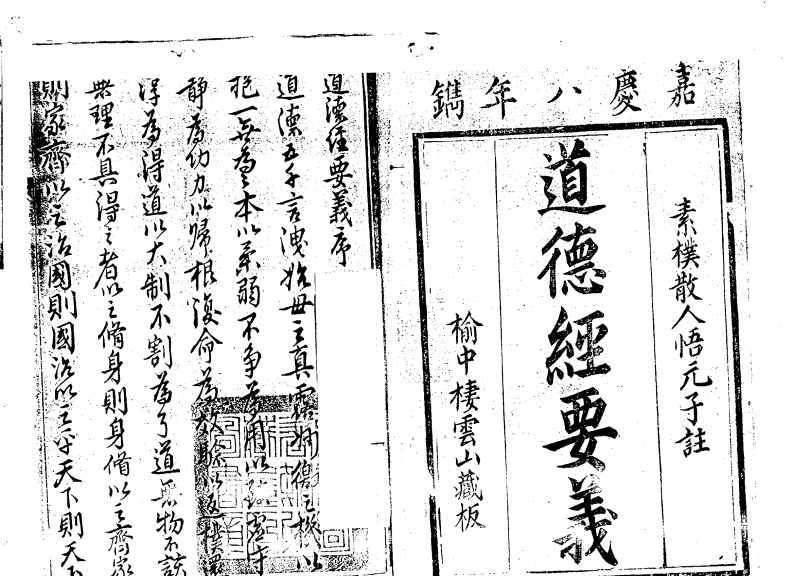 嘉慶八年鐫
素樸散人悟元子註
道德經要義
榆中棲雲山藏板
道德經要義序
道德五千言洩始母之真露妙徼之機以
抱一無為為本以柔弱不争為用以致虛守
靜為功力以歸根復命為效驗以返樸還
淳為得道以大制不割為了道無物不該
無理不具得之者以之脩身則身脩以之齊家
則家齊以之治國則國治以之平天下則天下